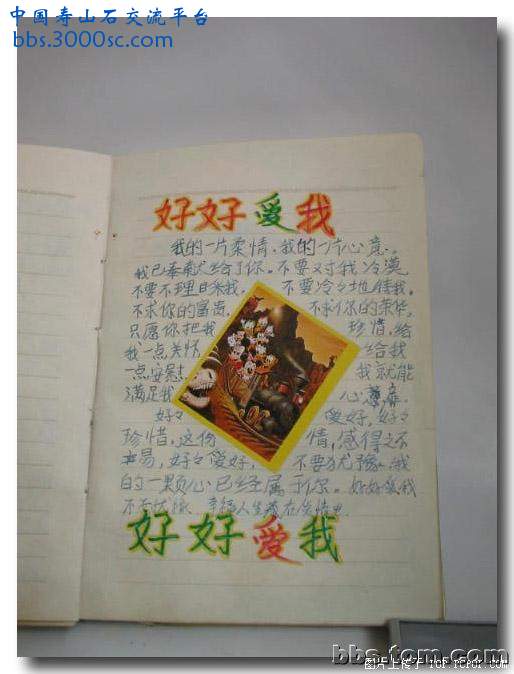 中国寿山石交流平台
bbs.3000sc.com
好好爱我
我的一片柔情、我的一片心意。
我已奉献给了你。不要对我冷漠
不要不理目来我, 不要冷冷地待我。
不求你的富贵, 不求你的荣华,
只愿你把我 珍惜,给
我一点关怀 给我
一点安慰 我就能
满足我 心意
好々 爱好,好々
珍惜,这份 情,感得之不
易,好々爱好, 不要犹豫。我
的一颗心已经属于你。好好爱我
不
好好爱我
bbs.fcrcr.com
图片上传于